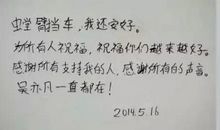 螳臂挡车，我还安好。
为所有人祝福，祝福你们越来越好。
感谢所有支持我的人，感谢所有的声音。
吴亦凡一直都在！
2014.5.16